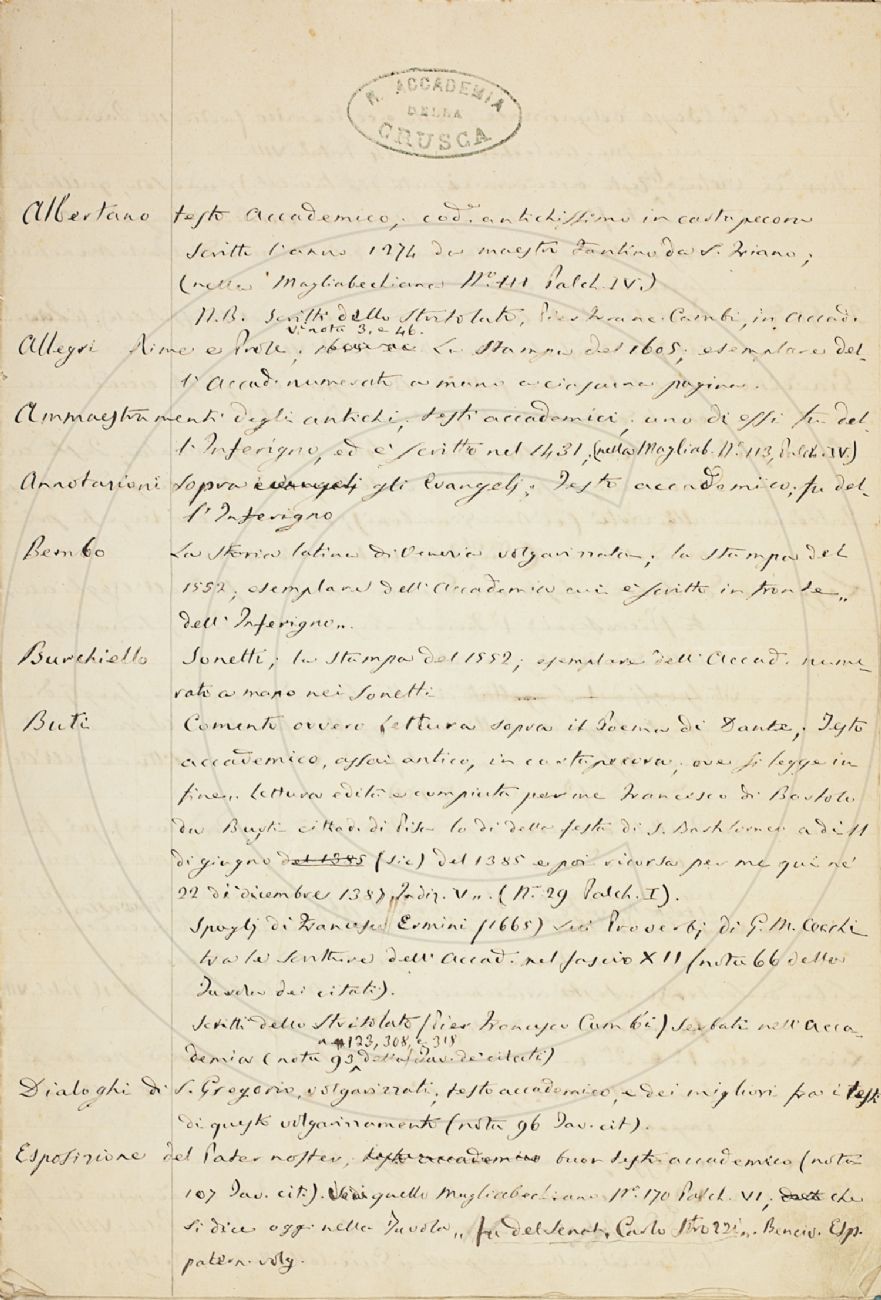 R. ACCADEMIA
DELLA
CRUSCA
Albertano testo Accademico, cod.e antichissimo in cartapecora
scritto l'anno 1274 da maestro Fantino da S. Friano;
(nella Magliabechiana N.o 111 Palch. IV.)
N.B. Scritti dello Stritolato, Pier Franc. Cambi, in Accad.
V. nota 3, e 46.
Allegri Rime e Prose; La Stampa del 1605; esemplare del-
l'Accad. numerato a mano a ciascuna pagina.
Ammaestramenti degli antichi, testi accademici; uno di essi fu del-
l'Inferigno, ed è scritto nel 1431, (nella Magliab. N.o 113, Palch. IV)
Annotazioni sopra evangelj gli Evangelj; Testo accademico; fu del-
l'Inferigno
Bembo La Storia latina di Venezia volgarizzata; la stampa del
1552; esemplare dell'Accademia cui è scritto in fronte „
dell'Inferigno „.
Burchiello Sonetti; la stampa del 1552; esemplare dell'Accad. nume-
rato a mano nei Sonetti
Buti Comento ovvero lettura sopra il Poema di Dante; Testo
accademico, assai antico, in cartapecora, ove si legge in
fine „ lettura edita e compiuta per me Francesco di Bartolo
da Buti cittad. di Pisa lo dì della festa di S. Barthlomeo a dì 11
di giugno del 1385 (sic) del 1385 e poi ricorsa per me qui né
22 di dicembre 1387, Indiz. V „. (N.o 29 Palch. I).
Spoglj di Francesco Ermini (1665) sui Proverbj di G. M. Cecchi
tra le scritture dell'Accad. nel fascio XII (nota 66 della
Tavola dei citati).
Scritti dello Stritolato (Pier Francesco Cambi) serbati nell'Acca-
123, 308, e 318
demia (nota 93 della Tav. de' citati)
Dialoghi di S. Gregorio, volgarizzati, testo accademico, e dei migliori fra i testi
di questo volgarizzamento (nota 96 Tav. cit).
Esposizione del Pater noster, testo accademico buon testo accademico (nota
107 Tav. cit.). quello Magliabechiano N.o 170 Palch. VI, che
si dice oggi nella Tavola „ fu del Senat. Carlo Strozzi „. Bencio. Esp.
patern. volg.